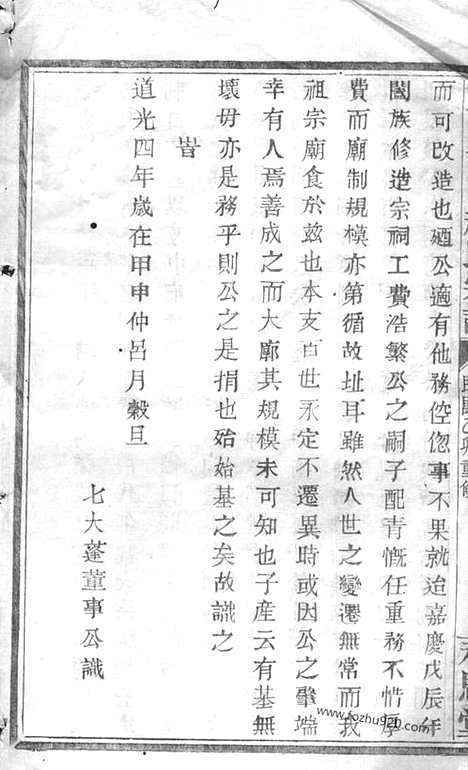 而可改造也廼公適有他務倥偬事不果就迨嘉慶戊辰年
闔族修造宗祠工費浩繁公之嗣子配青慨任重務不惜厚
費而廟制規模亦第循故址耳雖然人世之變遷無常而我
祖宗廟食於兹也本支百世永定不遷異時或因公之肇端
幸有人焉善成之而大廓其規模未可知也子產云有基無
壞毋亦是務乎則公之是捐也殆始基之矣故識之
旹
道光四年歲在甲申仲呂月穀旦
七大蓬董事公識
民國乙卯重修
www.fozhu920.com